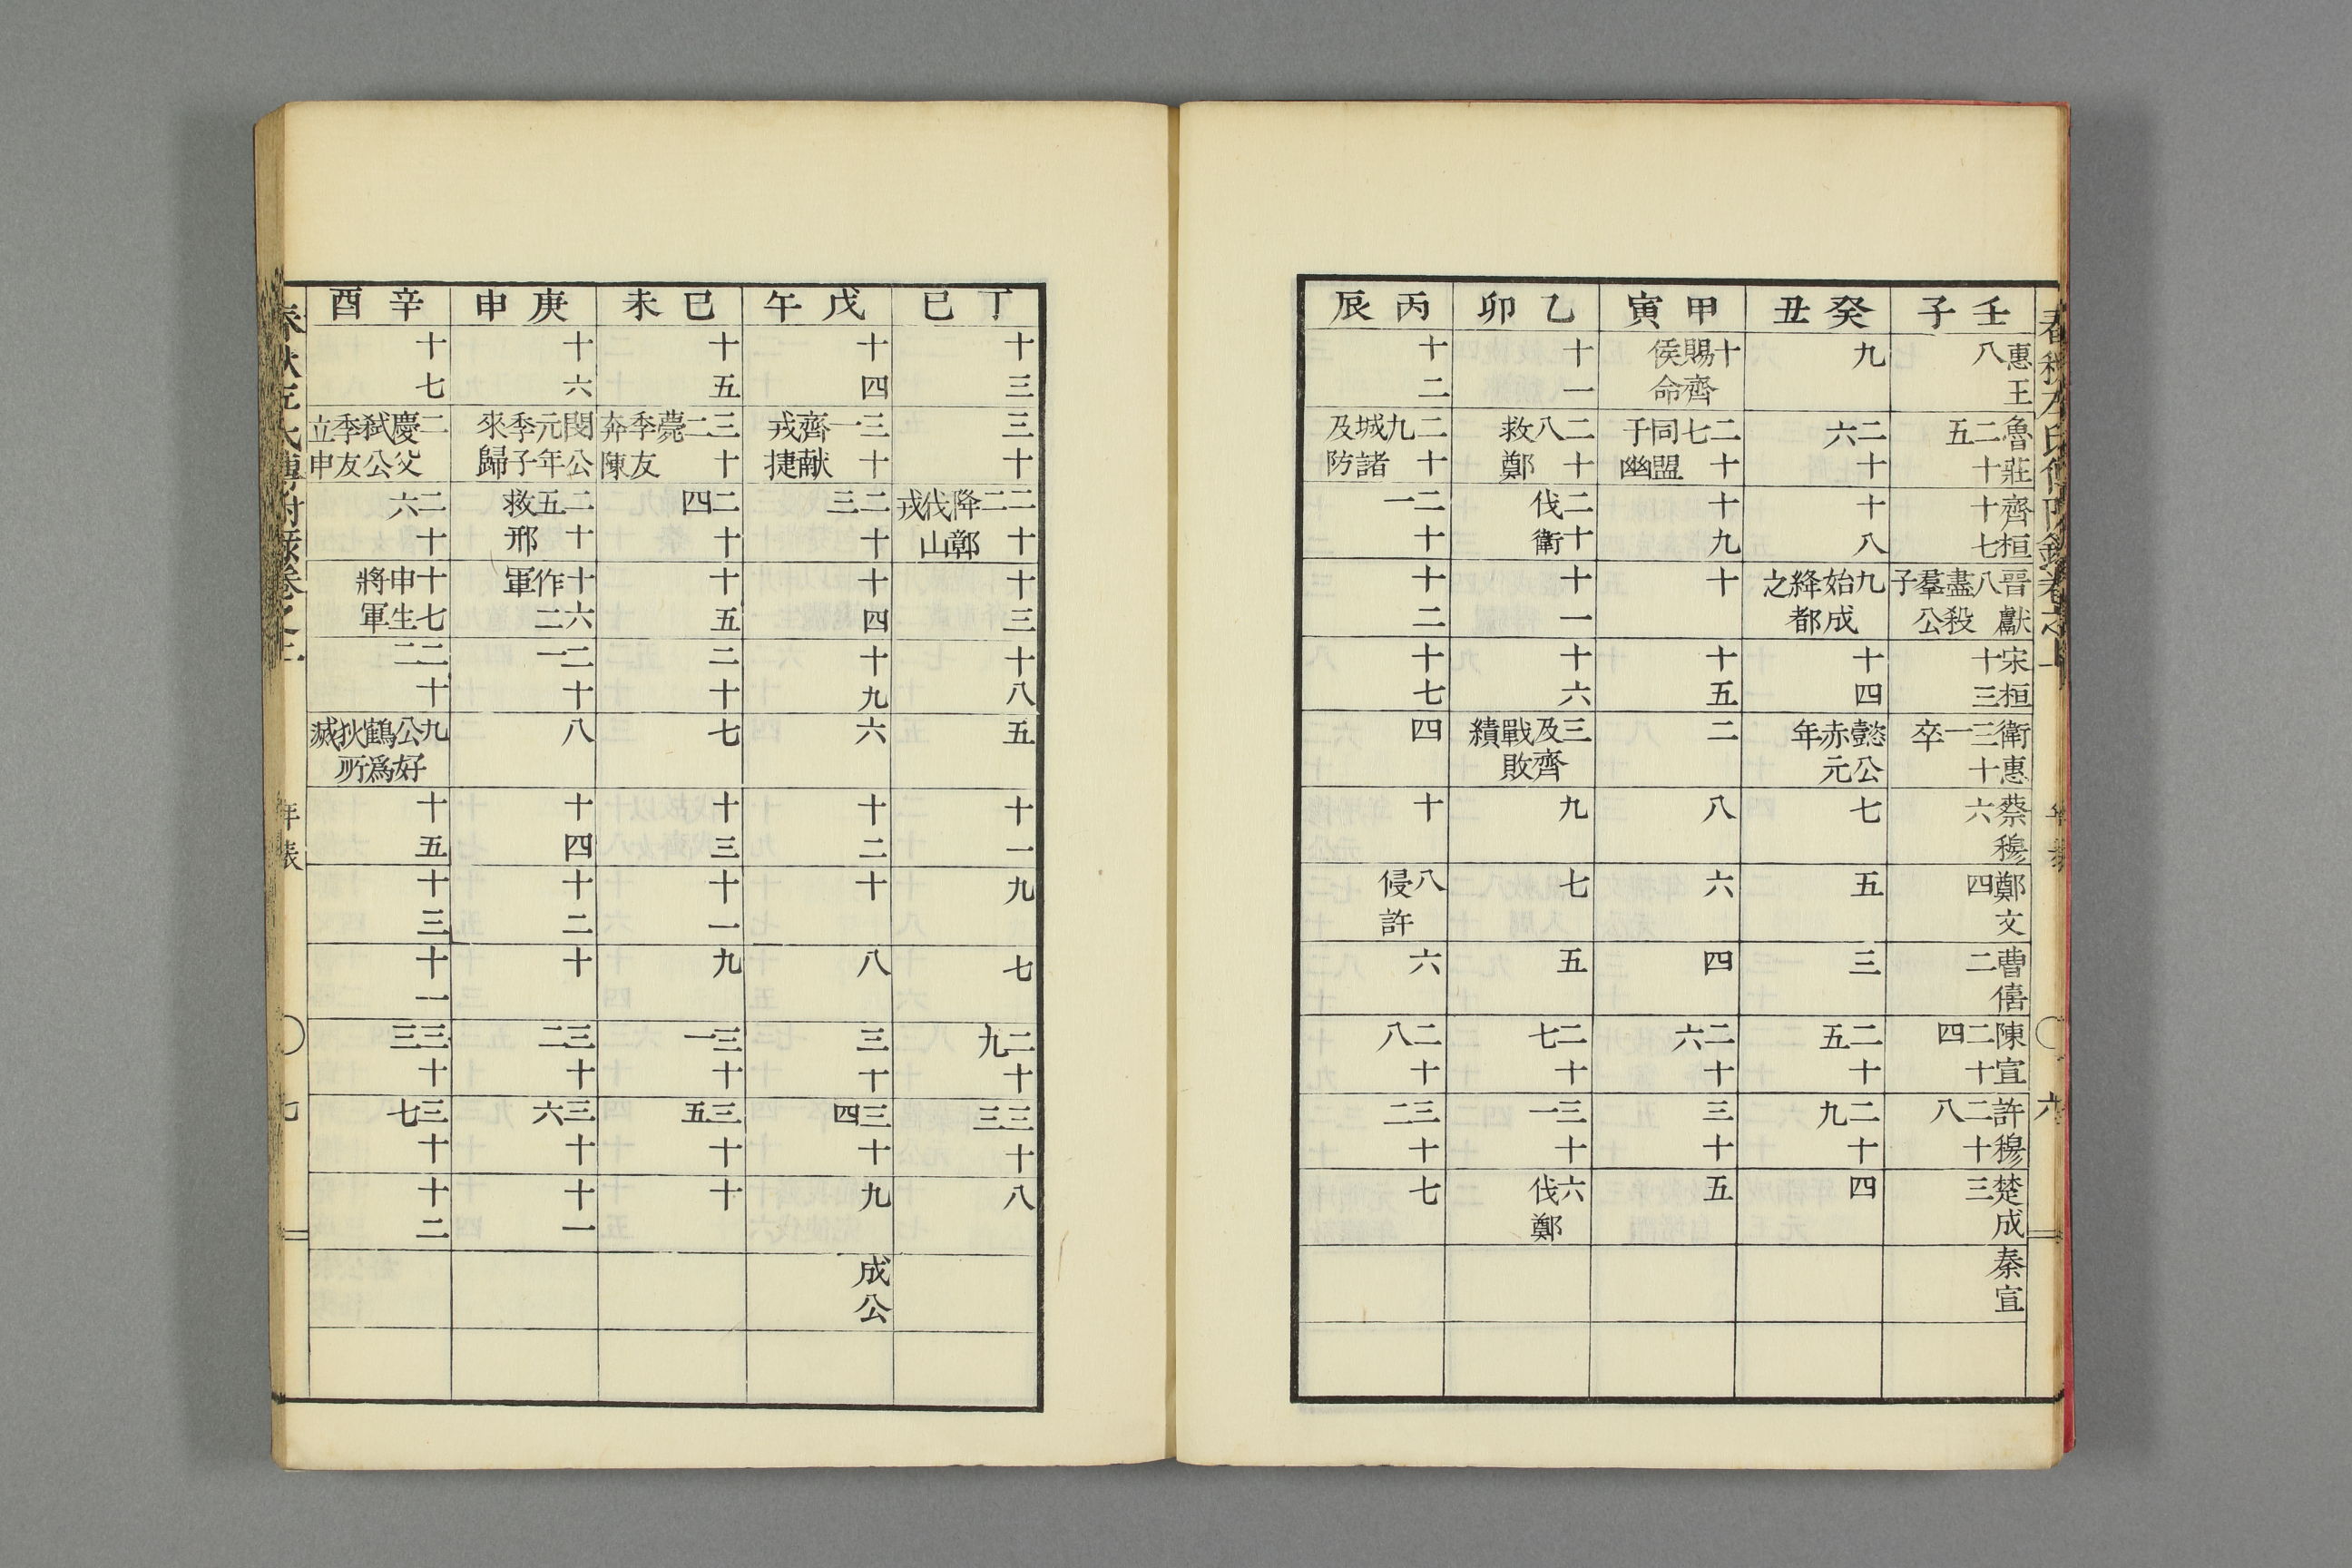 春秋左氏傳附錄卷之上 年表 六
壬子
惠王八
魯莊二十五
齊桓十七
晉獻八盡殺羣公子
宋桓十三
衛惠三十一卒
蔡穆六
鄭文四
曹僖二
陳宣二十四
許穆二十八
楚成三
秦宣
癸丑
九
二十六
十八
九始成絳都之
十四
懿公赤元年
七
五
三
二十五
二十九
四
甲寅
十賜齊侯命
二十七同盟于幽
十九
十
十五
二
八
六
四
二十六
三十
五
乙卯
十一
二十八救鄭
二十伐衛
十一
十六
三及齊戰敗績
九
七
五
二十七
三十一
六伐鄭
丙辰
十二
二十九城諸及防
二十一
十二
十七
四
十
八侵許
六
二十八
三十二
七
丁巳
十三
三十
二十二降鄣伐山戎
十三
十八
五
十一
九
七
二十九
三十三
八
戊午
十四
三十一齊献戎捷
二十三
十四
十九
六
十二
十
八
三十
三十四
九
成公
巳未
十五
三十二薨季友奔陳
二十四
十五
二十
七
十三
十一
九
三十一
三十五
十
庚申
十六
閔公元年季子來歸
二十五救邢
十六作二軍
二十一
八
十四
十二
十
三十二
三十六
十一
辛酉
十七
二慶父弑公季友立申
二十六
十七申生將軍
二十二
九公好鶴爲狄所滅
十五
十三
十一
三十三
三十七
十二
春秋左氏傳附錄卷之上 年表 七